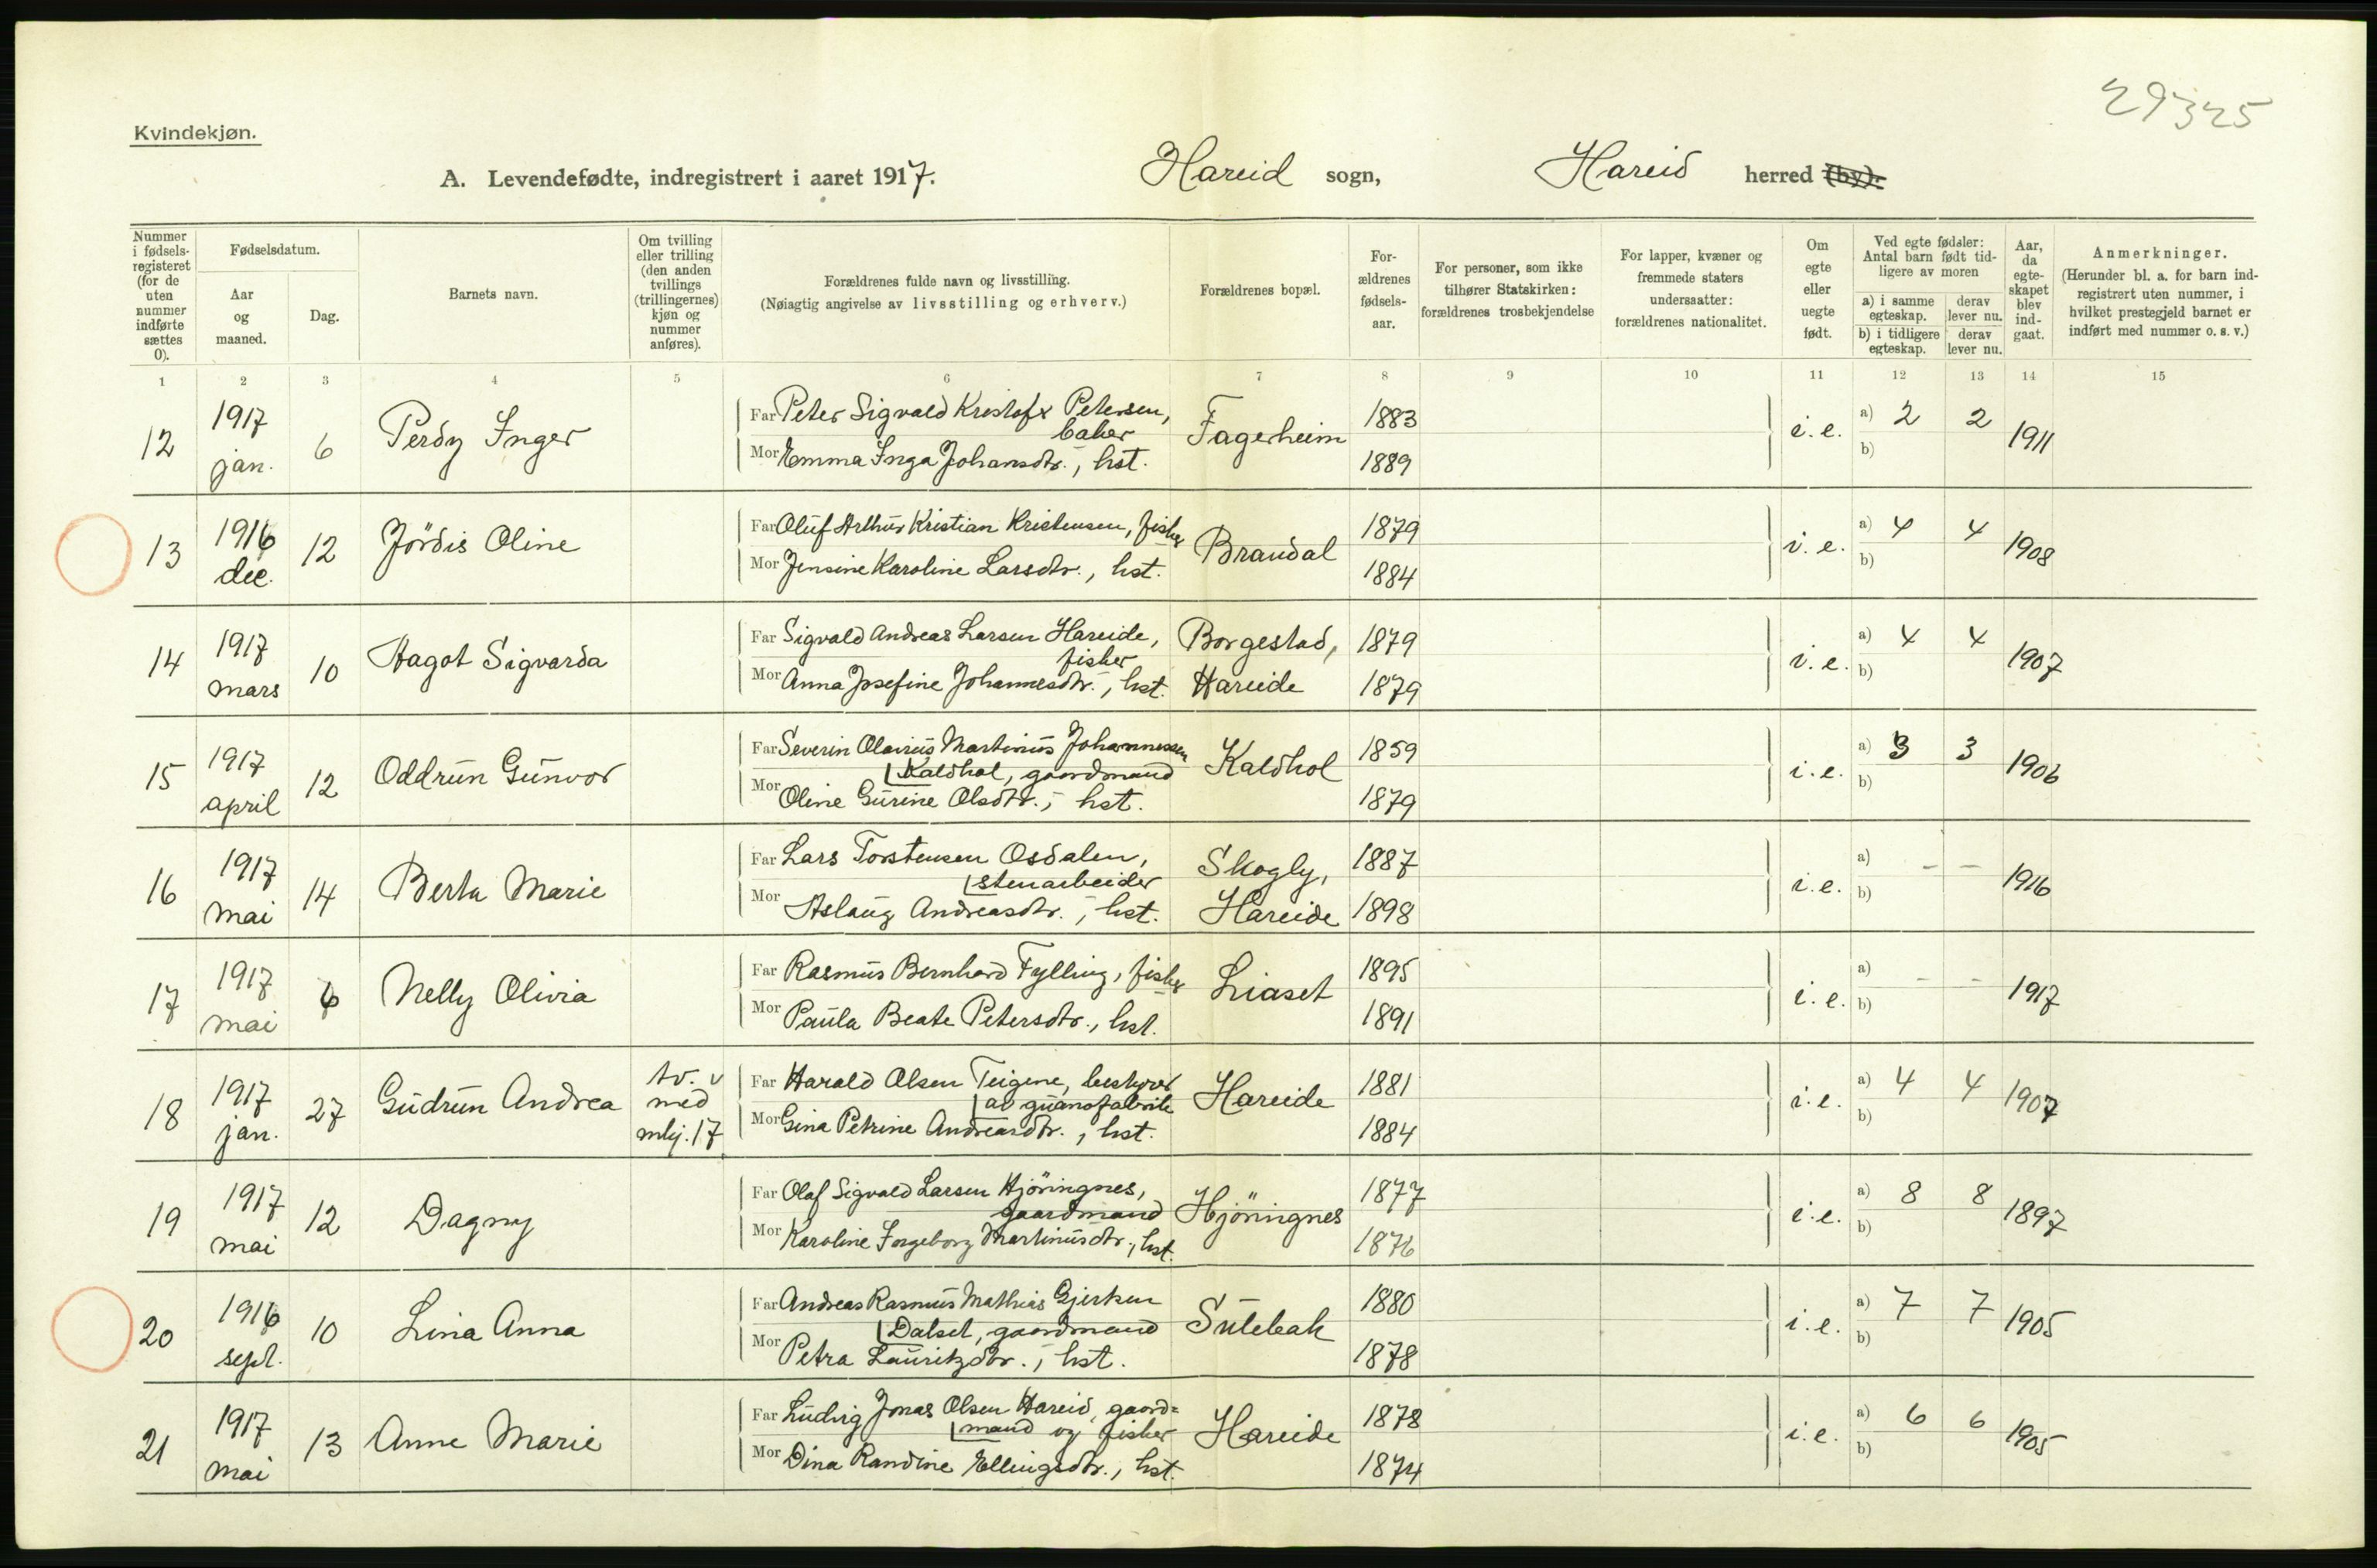 29325
Kvindekjøn.
A. Levendefødte, indregistrert i aaret 1917. Hareid sogn, Hareid herred (by).
Nummer i fødsels-registeret (for de uten nummer indførte sættes 0).
Fødselsdatum.
Aar og maaned.
Dag.
Barnets navn.
Om tvilling eller trilling (den anden tvillings (trillingernes) kjøn og nummer anføres).
Forældrenes fulde navn og livsstilling.
(Nøiagtig angivelse av livsstilling og erhverv.)
Forældrenes bopæl.
For-ældrenes fødsels-aar.
For personer, som ikke tilhører Statskirken: forældrenes trosbekjendelse
For lapper, kvæner og fremmede staters undersaatter: forældrenes nationalitet.
Om egte eller uegte født.
Ved egte fødsler: Antal barn født tid-ligere av moren
a) i samme egteskap. derav lever nu.
b) i tidligere egteskap. derav lever nu.
Aar, da egte-skapet blev ind-gaat.
Anmerkninger.
(Herunder bl. a. for barn ind-registrert uten nummer, i hvilket prestegjeld barnet er indført med nummer o. s. v.)
1 2 3 4 5 6 7 8 9 10 11 12 13 14 15
12 1917 jan. 6 Perdy Inger
Far Peter Sigvald Kristofx Petersen, baker
Mor Emma Inga Johansdtr., hst.
Fagerheim 1883 1889 i.e. a) 2 2 b) 1911
13 1916 dec. 12 Jördis Oline
Far Oluf Arthur Kristian Kristensen, fisker
Mor Jensine Karoline Larsdtr., hst.
Brandal 1879 1884 i.e. a) 4 4 b) 1908
14 1917 mars 10 Hagot Sigvarda
Far Sigvald Andreas Larsen Hareide, fisker
Mor Anna Josefine Johannesdtr., hst.
Borgestad, Hareide 1879 1879 i.e. a) 4 4 b) 1907
15 1917 april 12 Oddrun Gunvor
Far Severin Olavius Martinus Johannessen Kaldhol, gaardmand
Mor Oline Gurine Olsdtr., hst.
Kaldhol 1859 1879 i.e. a) 3 3 b) 1906
16 1917 mai 14 Berta Marie
Far Lars Torstensen Osdalen, stenarbeider
Mor Aslaug Andreasdtr., hst.
Skogly, Hareide 1887 1898 i.e. a) - - b) 1916
17 1917 mai 6 Nelly Olivia
Far Rasmus Bernhard Fylling, fisker
Mor Paula Beate Petersdtr., hst.
Liaset 1895 1891 i.e. a) - - b) 1917
18 1917 jan. 27 Gudrun Andrea tv. med mkj. 17
Far Harald Olsen Teigene, bestyrer av guanofabrik
Mor Gina Petrine Andreasdtr., hst.
Hareide 1881 1884 i.e. a) 4 4 b) 1907
19 1917 mai 12 Dagny
Far Olaf Sigvald Larsen Hjöringnes, gaardmand
Mor Karoline Ingeborg Martinusdtr., hst.
Hjöringnes 1877 1876 i.e. a) 8 8 b) 1897
20 1916 sept. 10 Lina Anna
Far Andreas Rasmus Mathias Gjertsen Dalset, gaardmand
Mor Petra Lauritzdtr., hst.
Sulebak 1880 1878 i.e. a) 7 7 b) 1905
21 1917 mai 13 Anne Marie
Far Ludvig Jonas Olsen Hareid, gaard=mand og fisker
Mor Dina Randine Ellingsdtr., hst.
Hareide 1878 1874 i.e. a) 6 6 b) 1905